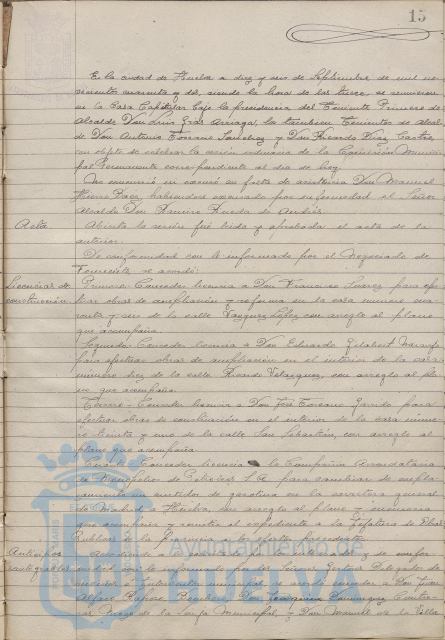 15
En la ciudad de Huelva a diez y seis de Septiembre de mil no-
vecientos cuarenta y dos, siendo la hora de las trece, se reunieron
en la Casa Capitular bajo la presidencia del Teniente Primero de
Alcalde Don Luis Arriaga, los también Tenientes de Alcal-
de Don Antonio Toscano y Don Ricardo Díaz Castro
con objeto de celebrar la sesión ordinaria de la Comisión Munici-
pal Permanente correspondiente al día de hoy.
No concurrió ni excusó su falta de asistencia Don Manuel
Báez, habiéndose excusado por su enfermedad el Señor
Alcalde Don Ramiro
Acta
Abierta la sesión fué leída y aprobada el acta de la
anterior.
De conformidad con lo informado por el Negociado de
Fomento, se acordó:
Licencias de
construcción
Primero: Conceder licencia a Don Francisco Suárez para efec-
tuar obras de ampliación y reforma en la casa número cua-
renta y seis de la calle Vázquez López con arreglo al plano
que acompaña.
Segundo: Conceder licencia a Don Eduardo Gilabert Naranjo
para efectuar obras de ampliación en el interior de la casa
número diez de la calle Ricardo Velázquez, con arreglo al pla-
no que acompaña.
Tercero: Conceder licencia a Don José Toscano Garrido para
efectuar obras de construcción en el interior de la casa núme-
ro treinta y uno de la calle San Sebastián, con arreglo al
plano que acompaña.
Cuarto: Conceder licencia a la Compañía Arrendataria
de Monopolio de Petróleos S.A. para cambiar de empla-
zamiento un surtidor de gasolina en la carretera general
de Madrid a Huelva, con arreglo al plano y memoria
que acompaña y remitir el expediente a la Jefatura de Obras
Públicas de la provincia a los efectos procedentes.
Anticipos
reintegrables
Accediendo a lo y de confor-
midad con lo informado por los Señores Gestor Delegado de
e Interventor municipal se acordó conceder a Don Juan
Alfaro Don Joaquín Domínguez Contre-
ras de la Municipal, y Don Manuel de la Villa
Ayuntamiento de